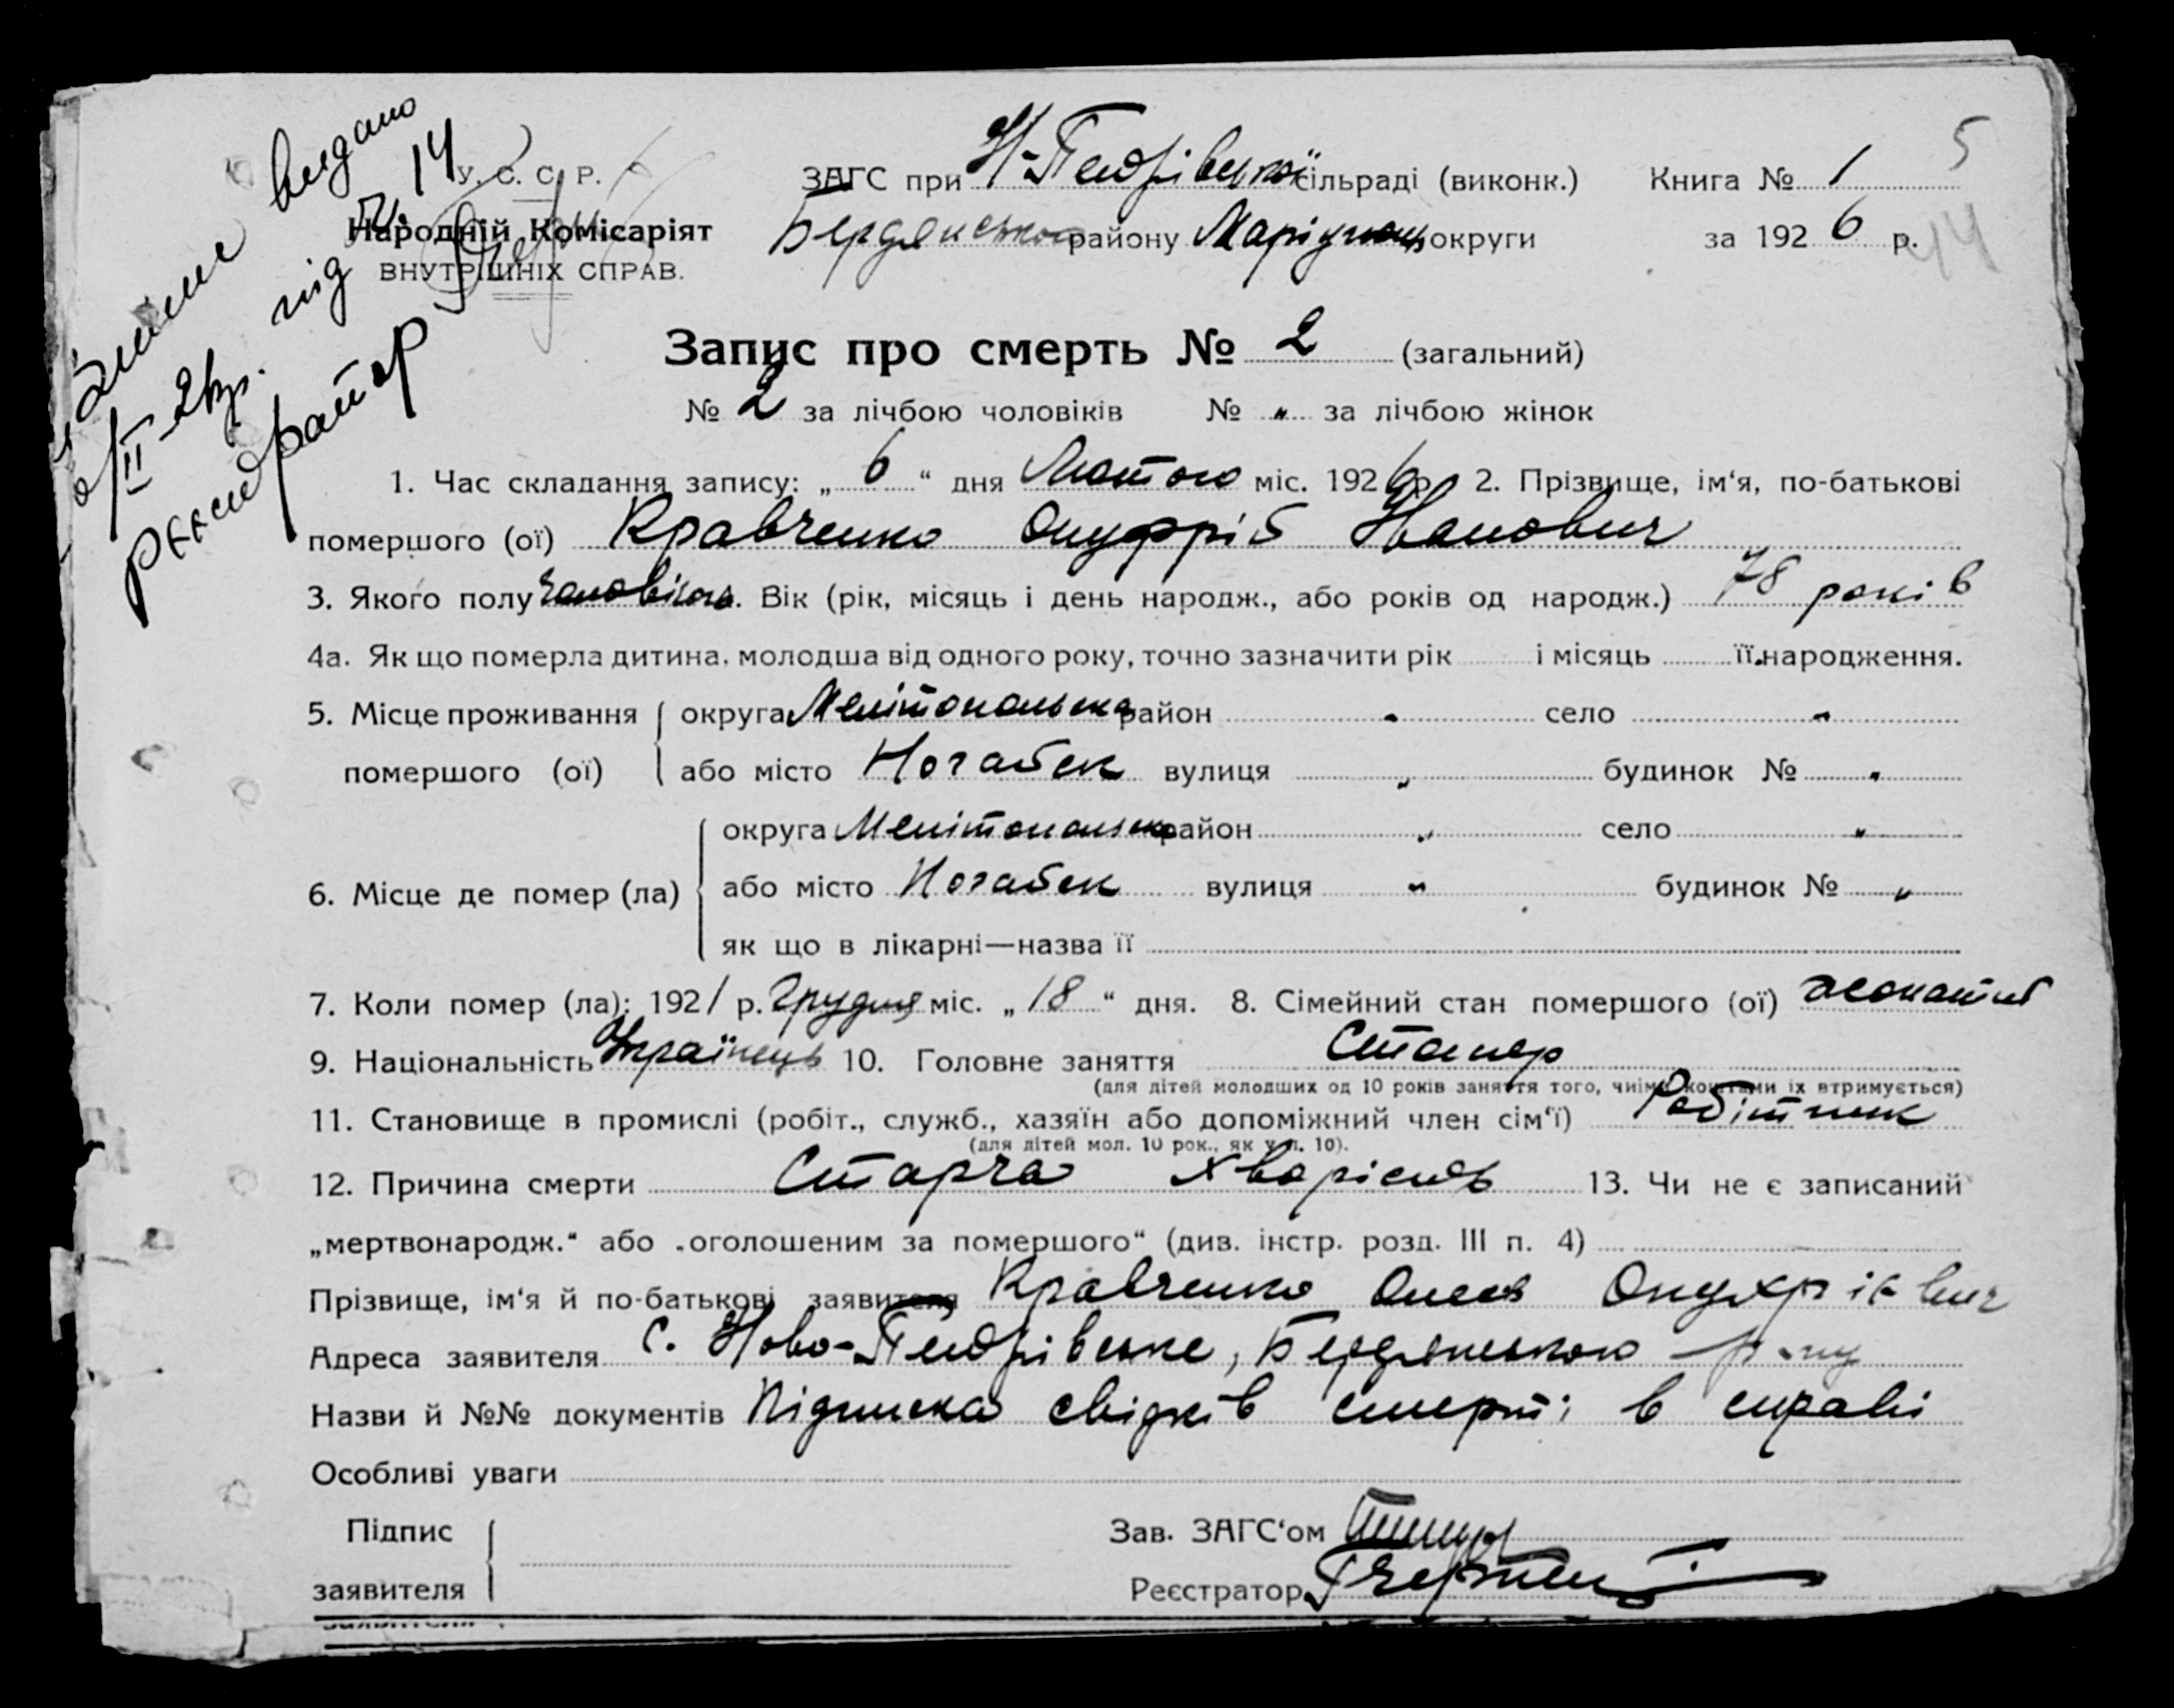 видано
№ 14
під
Реєстратор
У. С. С. Р.
Народній Комісаріят
ВНУТРІШНІХ СПРАВ.
ЗАГС при Н-Петрівській сільраді (виконк.) Книга № 1 5
Бердянського району Маріупольс округи за 1926 р. 44
Запис про смерть № 2 (загальний)
№ 2 за лічбою чоловіків № „ за лічбою жінок
1. Час складання запису: „ 6 “ дня Лютого міс. 1926 р. 2. Прізвище, ім‘я, по-батькові
помершого (ої) Кравченко Онуфрій Иванович
3. Якого полу Чоловічого. Вік (рік, місяць і день народж., або років од народж.) 78 років
4а. Як що померла дитина, молодша від одного року, точно зазначити рік і місяць її народження.
5. Місце проживання округа Мелітопольська район „ село „
помершого (ої) або місто Ногайск вулиця „ будинок № „
округа Мелітопольська район „ село „
6. Місце де помер (ла) або місто Ногайск вулиця „ будинок № „
як що в лікарні—назва її
7. Коли помер (ла): 1921 р. Грудня міс. „ 18 “ дня. 8. Сімейний стан помершого (ої) жонатий
9. Національність Українець 10. Головне заняття Столяр
(для дітей молодших од 10 років заняття того, чиїми коштами їх втримується)
11. Становище в промислі (робіт., служб., хазяїн або допоміжний член сім‘ї) Робітник
(для дітей мол. 10 рок., як у п. 10).
12. Причина смерти Старча хворість 13. Чи не є записаний
„мертвонародж.“ або „оголошеним за помершого“ (див. інстр. розд. III п. 4)
Прізвище, ім‘я й по-батькові заявителя Кравченко Онуфрієвич
Адреса заявителя с. Ново-Петрівське, Бердянського р-ну
Назви й №№ документів Підписка свідків смерті в справі
Особливі уваги
Підпис
заявителя
Зав. ЗАГС‘ом
Реєстратор